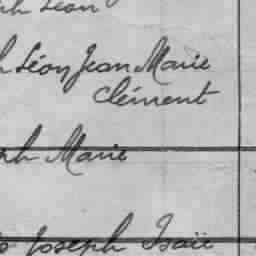 ph Léon
h Léon Jean Marie
Clément
ph Marie
s Joseph Isaïe